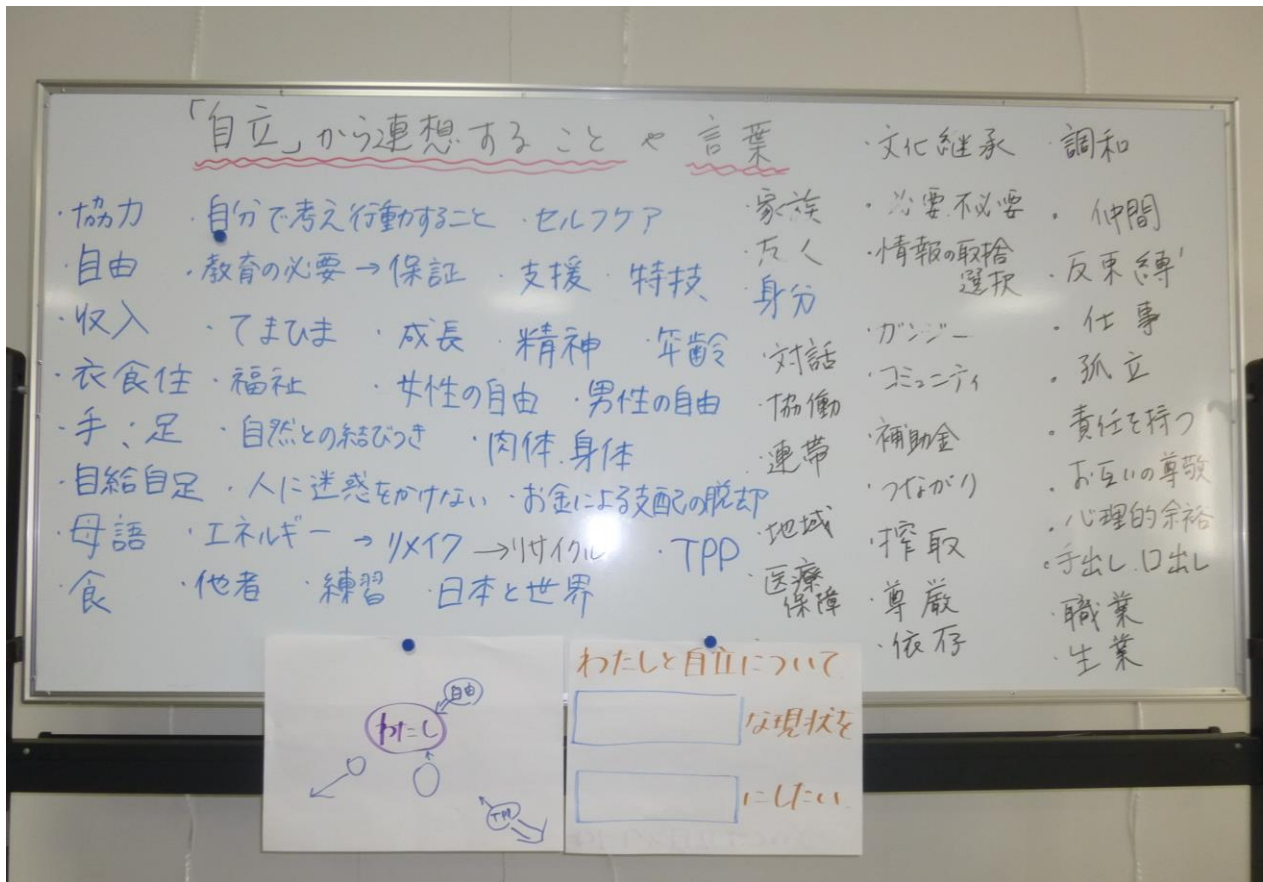 「自立」から連想することや言葉
・協力 ・自分で考え行動すること ・セルフケア
・自由 ・教育の必要→保証 ・支援 ・特技
・収入 ・てまひま ・成長 ・精神 ・年齢
・衣食住 ・福祉 ・女性の自由 ・男性の自由
・手・足 ・自然との結びつき ・肉体・身体
・自給自足 ・人に迷惑をかけない ・お金による支配の脱却
・母語 ・エネルギー →リメイク →リサイクル ・TPP
・食 ・他者 ・練習 ・日本と世界
・家族
・友人
・身分
・対話
・協働
・連帯
・地域
・医療
保障
・文化継承
・必要不必要
・情報の取捨
選択
・ガンジー
・コミュニティ
・補助金
・つながり
・搾取
・尊厳
・依存
・調和
・仲間
・反束縛
・仕事
・孤立
・責任を持つ
・お互いの尊敬
・心理的余裕
・手出し、口出し
・職業
・生業
自由
わたし
TPP
わたしと自立について
な現状を
にしたい